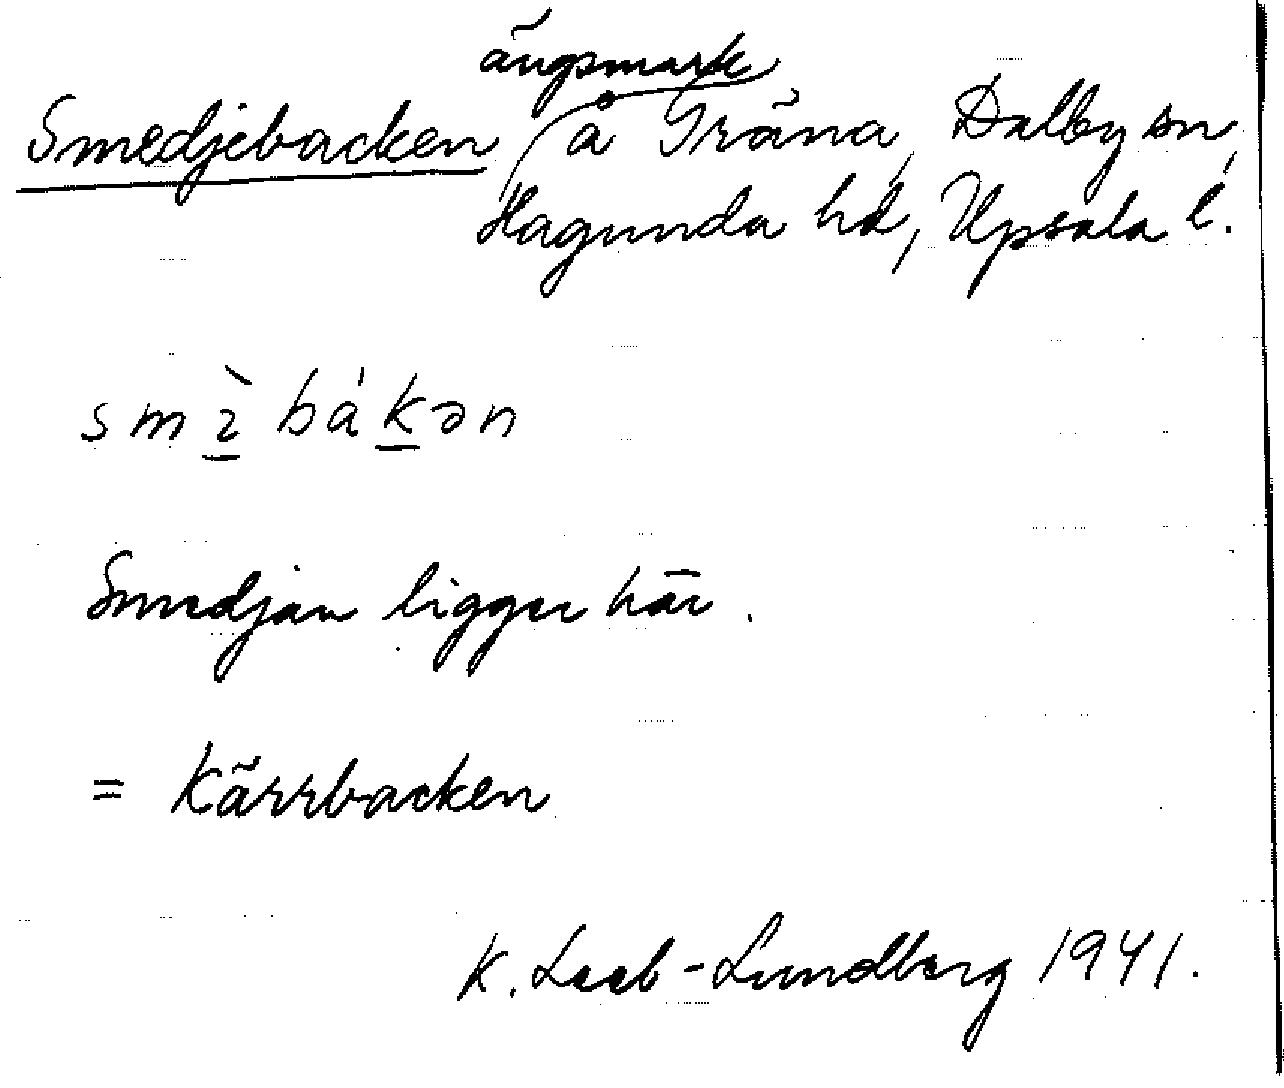 ängsmark
Smedjebacken å Träna, Dalby sn,
Hagunda hd, Upsala l.
bákən
Smedjan ligger här.
= Kärrbacken
K. Leeb-Lundberg 1941.